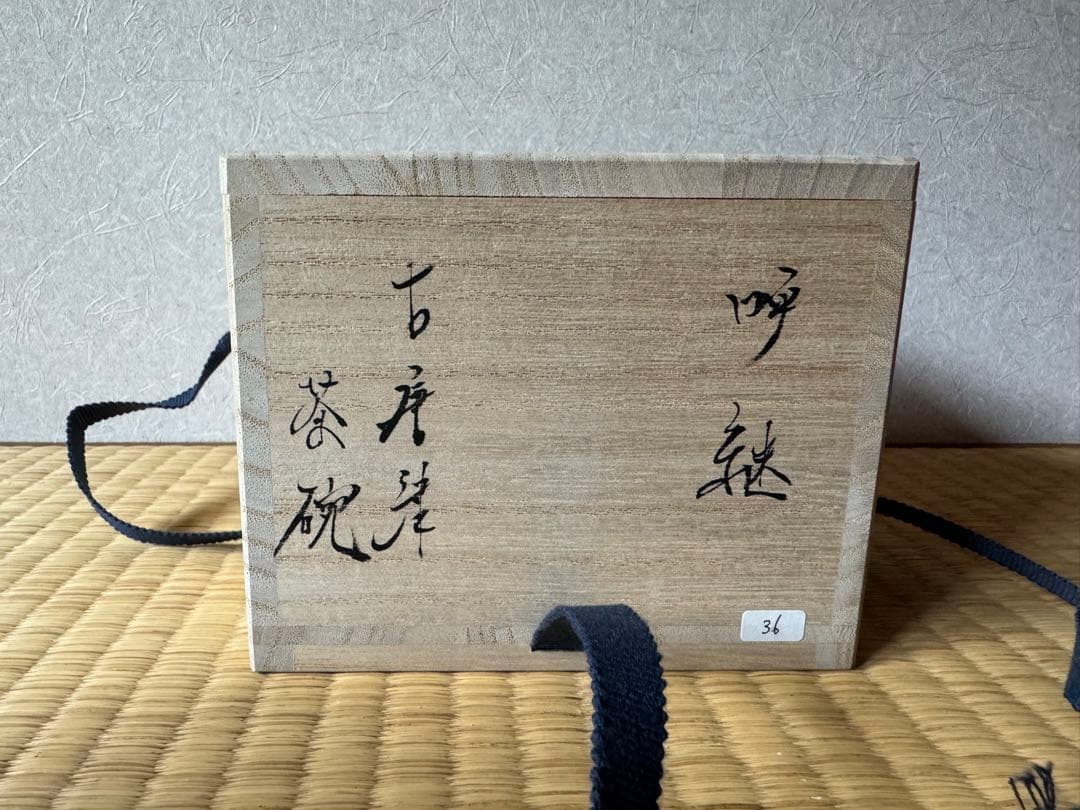 呼継
古唐津
茶碗
36